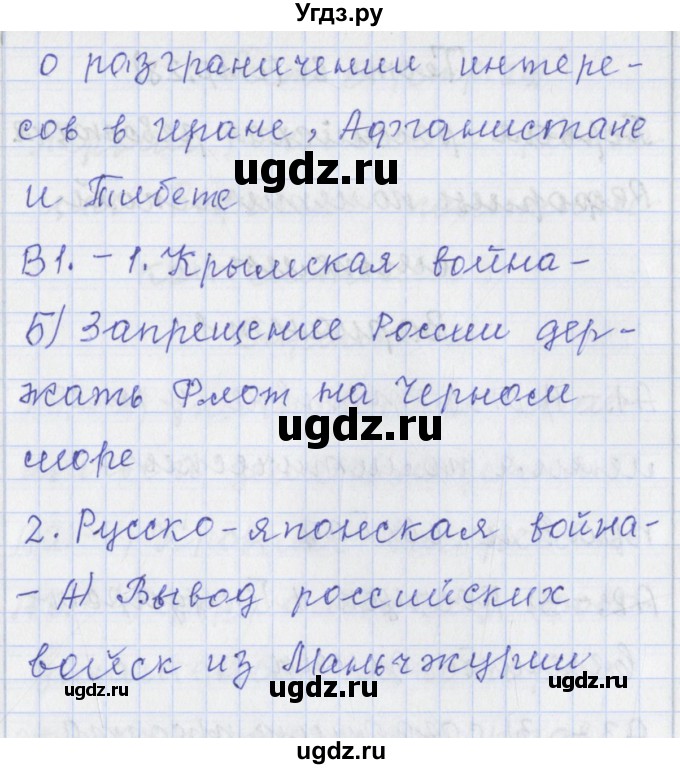 Угдз.ру
о разграничении интере-
сов в Иране, Афганистане
и Тибете
ugdz.ru
В1. - 1. Крымская война -
Б) Запрещение России дер-
жать Флот на Черном
ugdz.ru
море
2. Русско-японская война-
- А) Вывод российских
ugdz.ru
войск из Маньчжурии
ugdz.ru
ugdz.ru
ugdz.ru